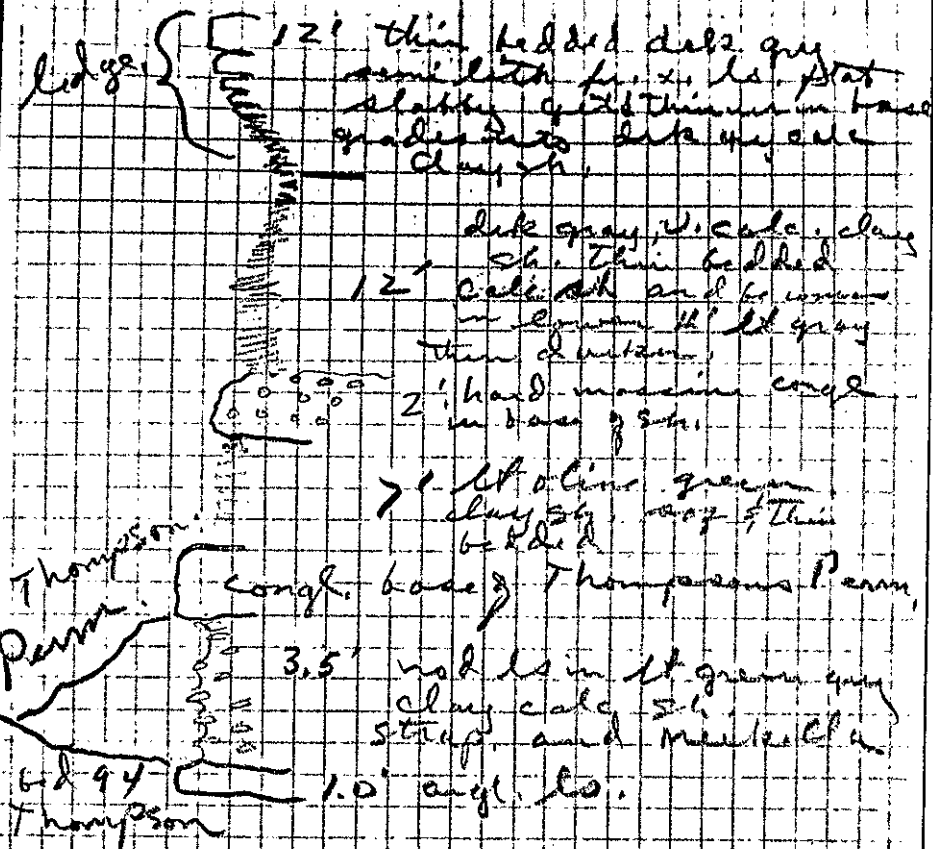 ledge.
12' thin bedded drk gry
semi lith fn. x. ls. plat
slabby getting thinner in base
grades into drk gry calc
clay sh.
drk gray, v. calc. clay
sh. thin bedded
12' calc. sh and
in lower lt gray
then
2' hard massive congl
in base of sh.
7' lt olive green
clay sh, & thin
bedded
Thompson.
congl. base of Thompsons Perm.
Perm.
3.5' nod ls in lt green gray
clay calc sh.
strap. and Meekella
bed 94
1.0' ls.
Thompson